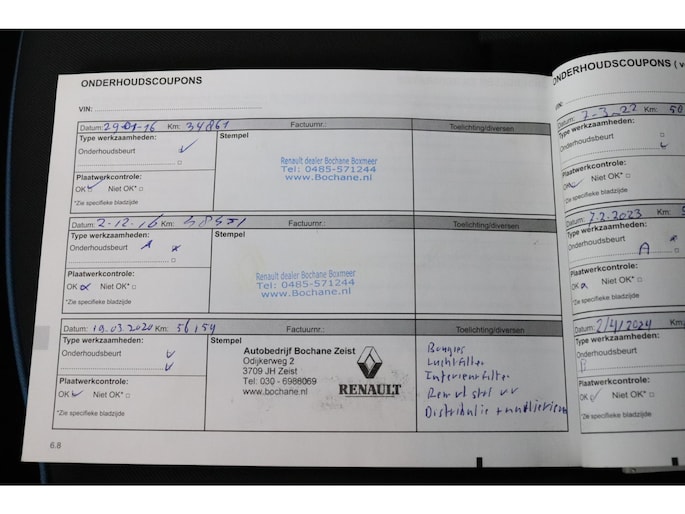 ONDERHOUDSCOUPONS
VIN:
Datum: 29-01-16 Km: 34861 Factuurnr.: Toelichting/diversen
Type werkzaamheden: Stempel
Onderhoudsbeurt
Renault dealer Bochane Boxmeer
Tel: 0485-571244
www.Bochane.nl
Plaatwerkcontrole:
OK Niet OK*
*Zie specifieke bladzijde
Datum: 2-12-16 Km: Factuurnr.: Toelichting/diversen
Type werkzaamheden: Stempel
Onderhoudsbeurt A
Renault dealer Bochane Boxmeer
Tel: 0485-571244
www.Bochane.nl
Plaatwerkcontrole:
OK Niet OK*
*Zie specifieke bladzijde
Datum: 19.03.2020 Km: 56154 Factuurnr.: Toelichting/diversen
Type werkzaamheden: Stempel
Onderhoudsbeurt
Autobedrijf Bochane Zeist
Odijkerweg 2
3709 JH Zeist
Tel: 030 - 6988069
www.bochane.nl
RENAULT
Bougies
Luchtfilter
Interieurfilter
Distributie + multiriem
Plaatwerkcontrole:
OK Niet OK*
*Zie specifieke bladzijde
6.8
ONDERHOUDSCOUPONS
VIN:
Datum: 2-3-22 Km:
Type werkzaamheden:
Onderhoudsbeurt
Plaatwerkcontrole:
OK Niet OK*
*Zie specifieke bladzijde
Datum: 7-2-2023
Type werkzaamheden:
Onderhoudsbeurt
A
Plaatwerkcontrole:
OK Niet OK*
*Zie specifieke bladzijde
Datum: 2/4/2024
Type werkzaamheden:
Onderhoudsbeurt
Plaatwerkcontrole:
OK Niet OK*
*Zie specifieke bladzijde